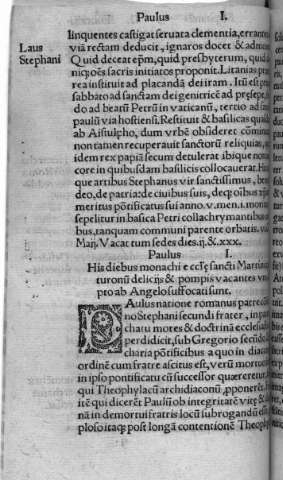 Paulus I.
linquentes castigat seruata clementia, errantes
Laus Stephani
viā rectam deducit, ignaros docet & admon
Quid deceat epm, quid presbyterum, quid
nicꝫ oēs sacris initiatos proponit. Litanias præ
rea instituit ad placandā dei iram. Itū est pri
sabbato ad sanctam dei genitricē ad præsepe,
do ad beatū Petrū in vaticanū, tertio ad san
paulū via hostiēsi. Restituit & basilicas quida
ab Aistulpho, dum vrbē obsideret cōminu
non tamen recuperauit sanctorū reliquias,
idem rex papiā secum detulerat ibique nona
core in quibusdam basilicis collocauerat. His
que artibus Stephanus vir sanctissimus, be
deo, de patria, de ciuibus suis, deqꝫ oībus aptē
meritus pōtificatus sui anno. v. men. i. mona
sepelitur in basilica Petri collachrymantibus
bus, tanquam communi parente orbatis.
Maij. Vacat tum sedes dies. ij. &. xxx.
Paulus I.
His diebus monachi e cctīę sancti Martini
turonū delicijs & pompis vacantes
pto ab Angelo suffocati sunt.
PAulus natione romanus patre cō
no Stephani secundi frater, in pa
chatu mores & doctrinā ecclesia
perdidicit, sub Gregorio secūdo
charia pōtificibus a quo in diaco
ordinē cum fratre ascitus est, verū mortuo
in ipso pontificatu cū successor quæreretur
qui Theophylactū archidiaconū, pponerēt.
itē qui dicerēt Paulū ob integritatē vitę &
nā in demortui fratris locū subrogandū
plosoitaqꝫ post longā contentionē Theoph